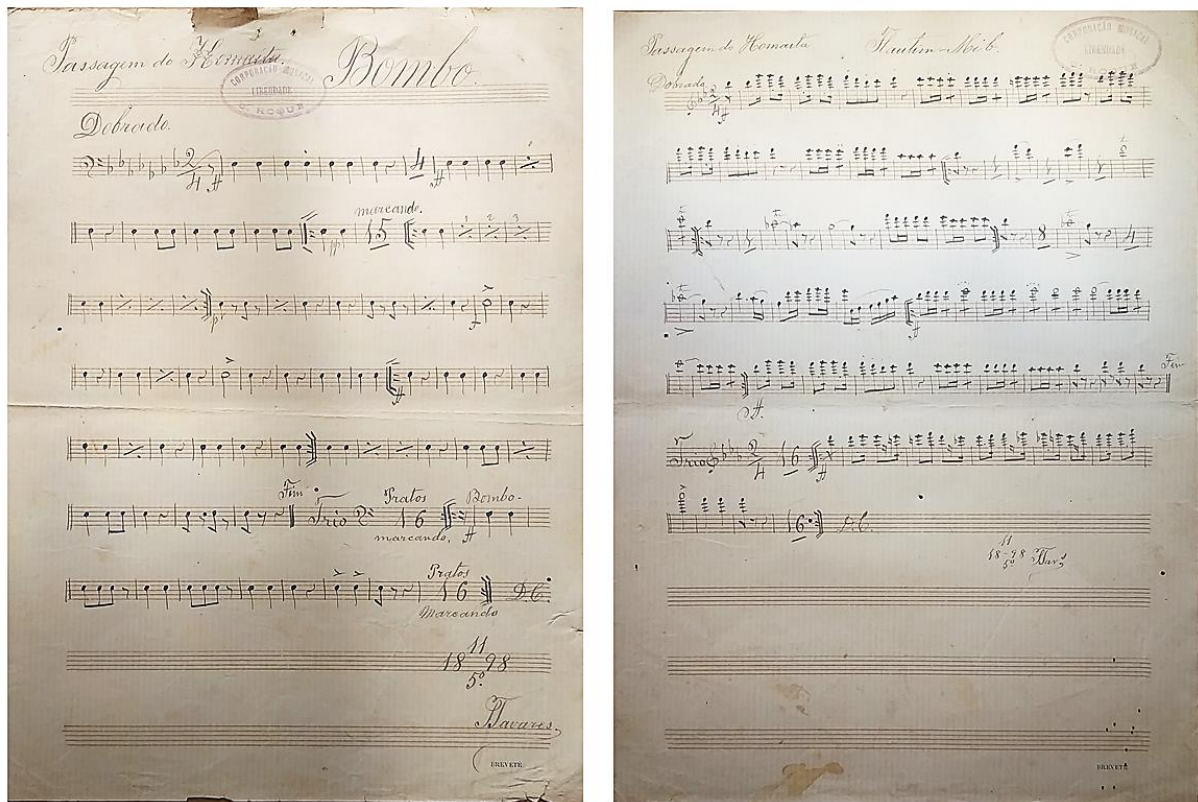 Passagem do Homaita.
Bombo.
CORPORAÇÃO MUSICAL
LIBERDADE
S. ROQUE
Dobrado.
2
4
ff
4
ff
marcando.
pp
15
1 2 3
p
f
ff
Fim
Trio
Pratos
16
marcando.
Bombo-
ff
Pratos
16
Marcando
D.C.
11
18 98
5º
Tavares.
BREVETÉ
Passagem do Homaita
Flautim - Mi b.
CORPORAÇÃO MUSICAL
LIBERDADE
S. ROQUE
Dobrado
2
4
ff
8
4
ff
ff.
Fim
Trio
2
4
16
ff
16
D.C.
11
18-98
5º
BREVETÉ